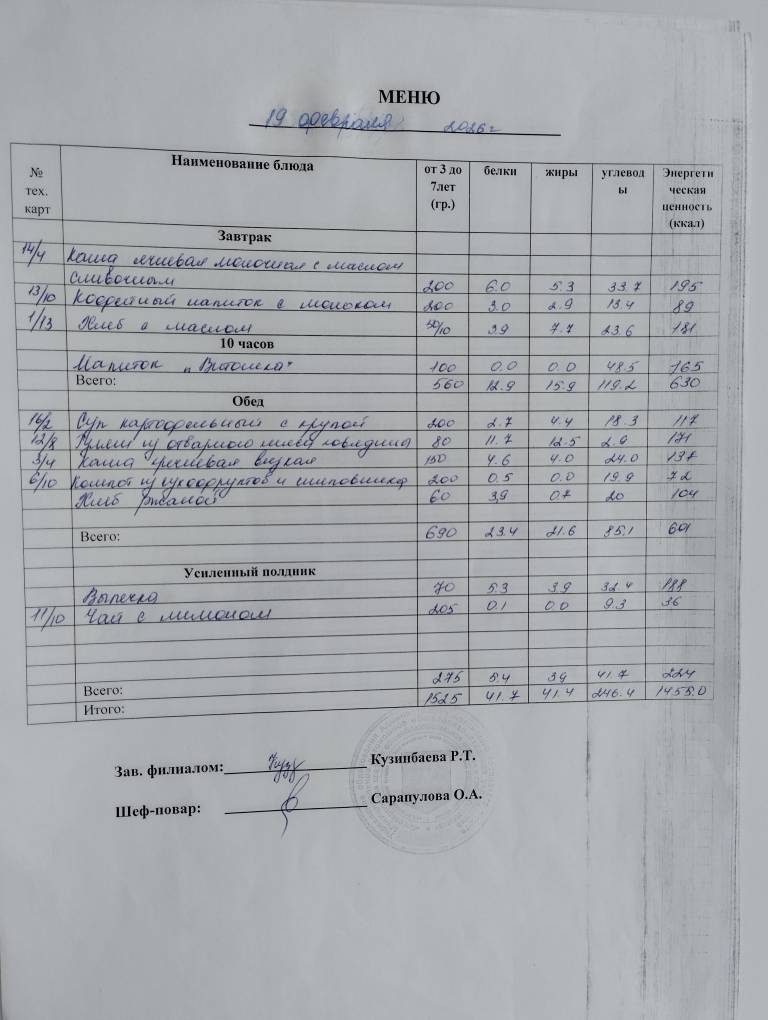 МЕНЮ
19 февраля 2026 г
№ тех. карт Наименование блюда от 3 до 7лет (гр.) белки жиры углеводы Энергетическая ценность (ккал)
Завтрак
14/4 Каша ячневая молочная с маслом
сливочным 200 6.0 5.3 33.7 195
13/10 Кофейный напиток с молоком 200 3.0 2.9 13.4 89
1/13 Хлеб с маслом 50/10 3.9 7.7 23.6 181
10 часов
Напиток "Витошка" 100 0.0 0.0 48.5 165
Всего: 560 12.9 15.9 119.2 630
Обед
16/2 Суп картофельный с крупой 200 2.7 4.4 18.3 117
12/8 Гуляш из отварного мяса говядина 80 11.7 12.5 2.9 171
3/4 Каша гречневая вязкая 150 4.6 4.0 24.0 137
6/10 Компот из сухофруктов и шиповника 200 0.5 0.0 19.9 72
Хлеб ржаной 60 3,9 0.7 20 104
Всего: 690 23.4 21.6 85.1 601
Усиленный полдник
Выпечка 70 5.3 3.9 32.4 188
11/10 Чай с лимоном 205 0.1 0.0 9.3 36
Всего: 275 5.4 3.9 41.7 224
Итого: 1525 41.7 41.4 246.4 1455.0
Зав. филиалом: Кузинбаева Р.Т.
Шеф-повар: Сарапулова О.А.